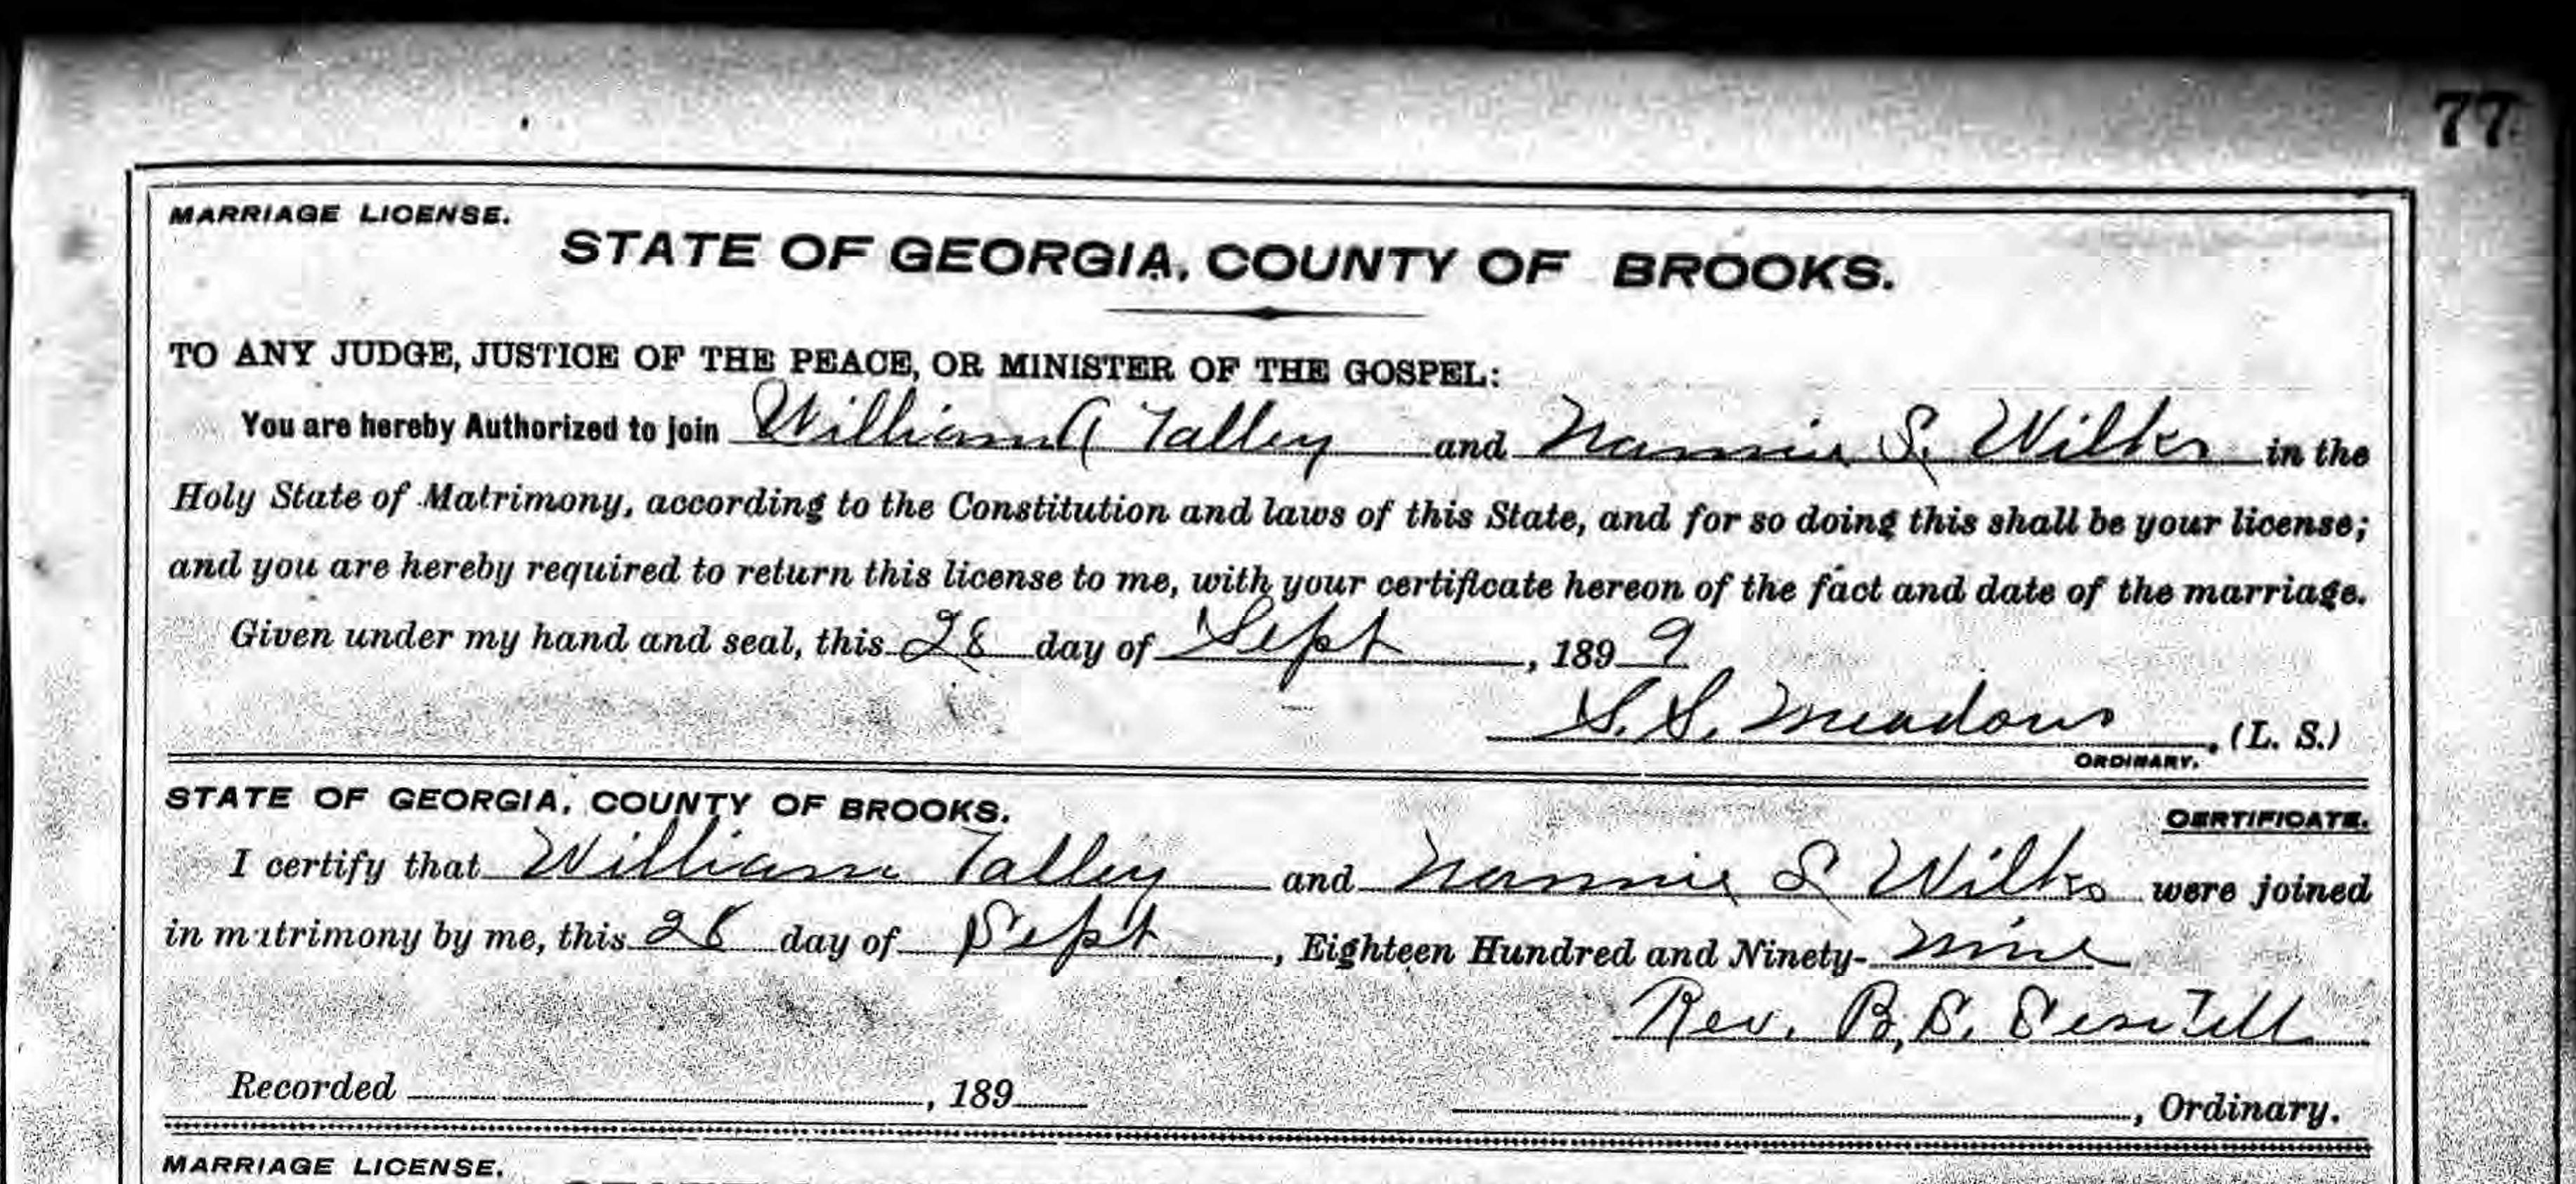 77
MARRIAGE LICENSE.
STATE OF GEORGIA, COUNTY OF BROOKS.
TO ANY JUDGE, JUSTICE OF THE PEACE, OR MINISTER OF THE GOSPEL:
You are hereby Authorized to join William A Talley and Nannie S. Wilks in the
Holy State of Matrimony, according to the Constitution and laws of this State, and for so doing this shall be your license;
and you are hereby required to return this license to me, with your certificate hereon of the fact and date of the marriage.
Given under my hand and seal, this 28 day of Sept, 1899
S. S. Meadows, (L. S.)
ORDINARY.
STATE OF GEORGIA, COUNTY OF BROOKS.
CERTIFICATE.
I certify that William Talley and Nannie S Wilks were joined
in matrimony by me, this 28 day of Sept, Eighteen Hundred and Ninety-nine
Rev. B, S.
Recorded, 189
, Ordinary.
MARRIAGE LICENSE.